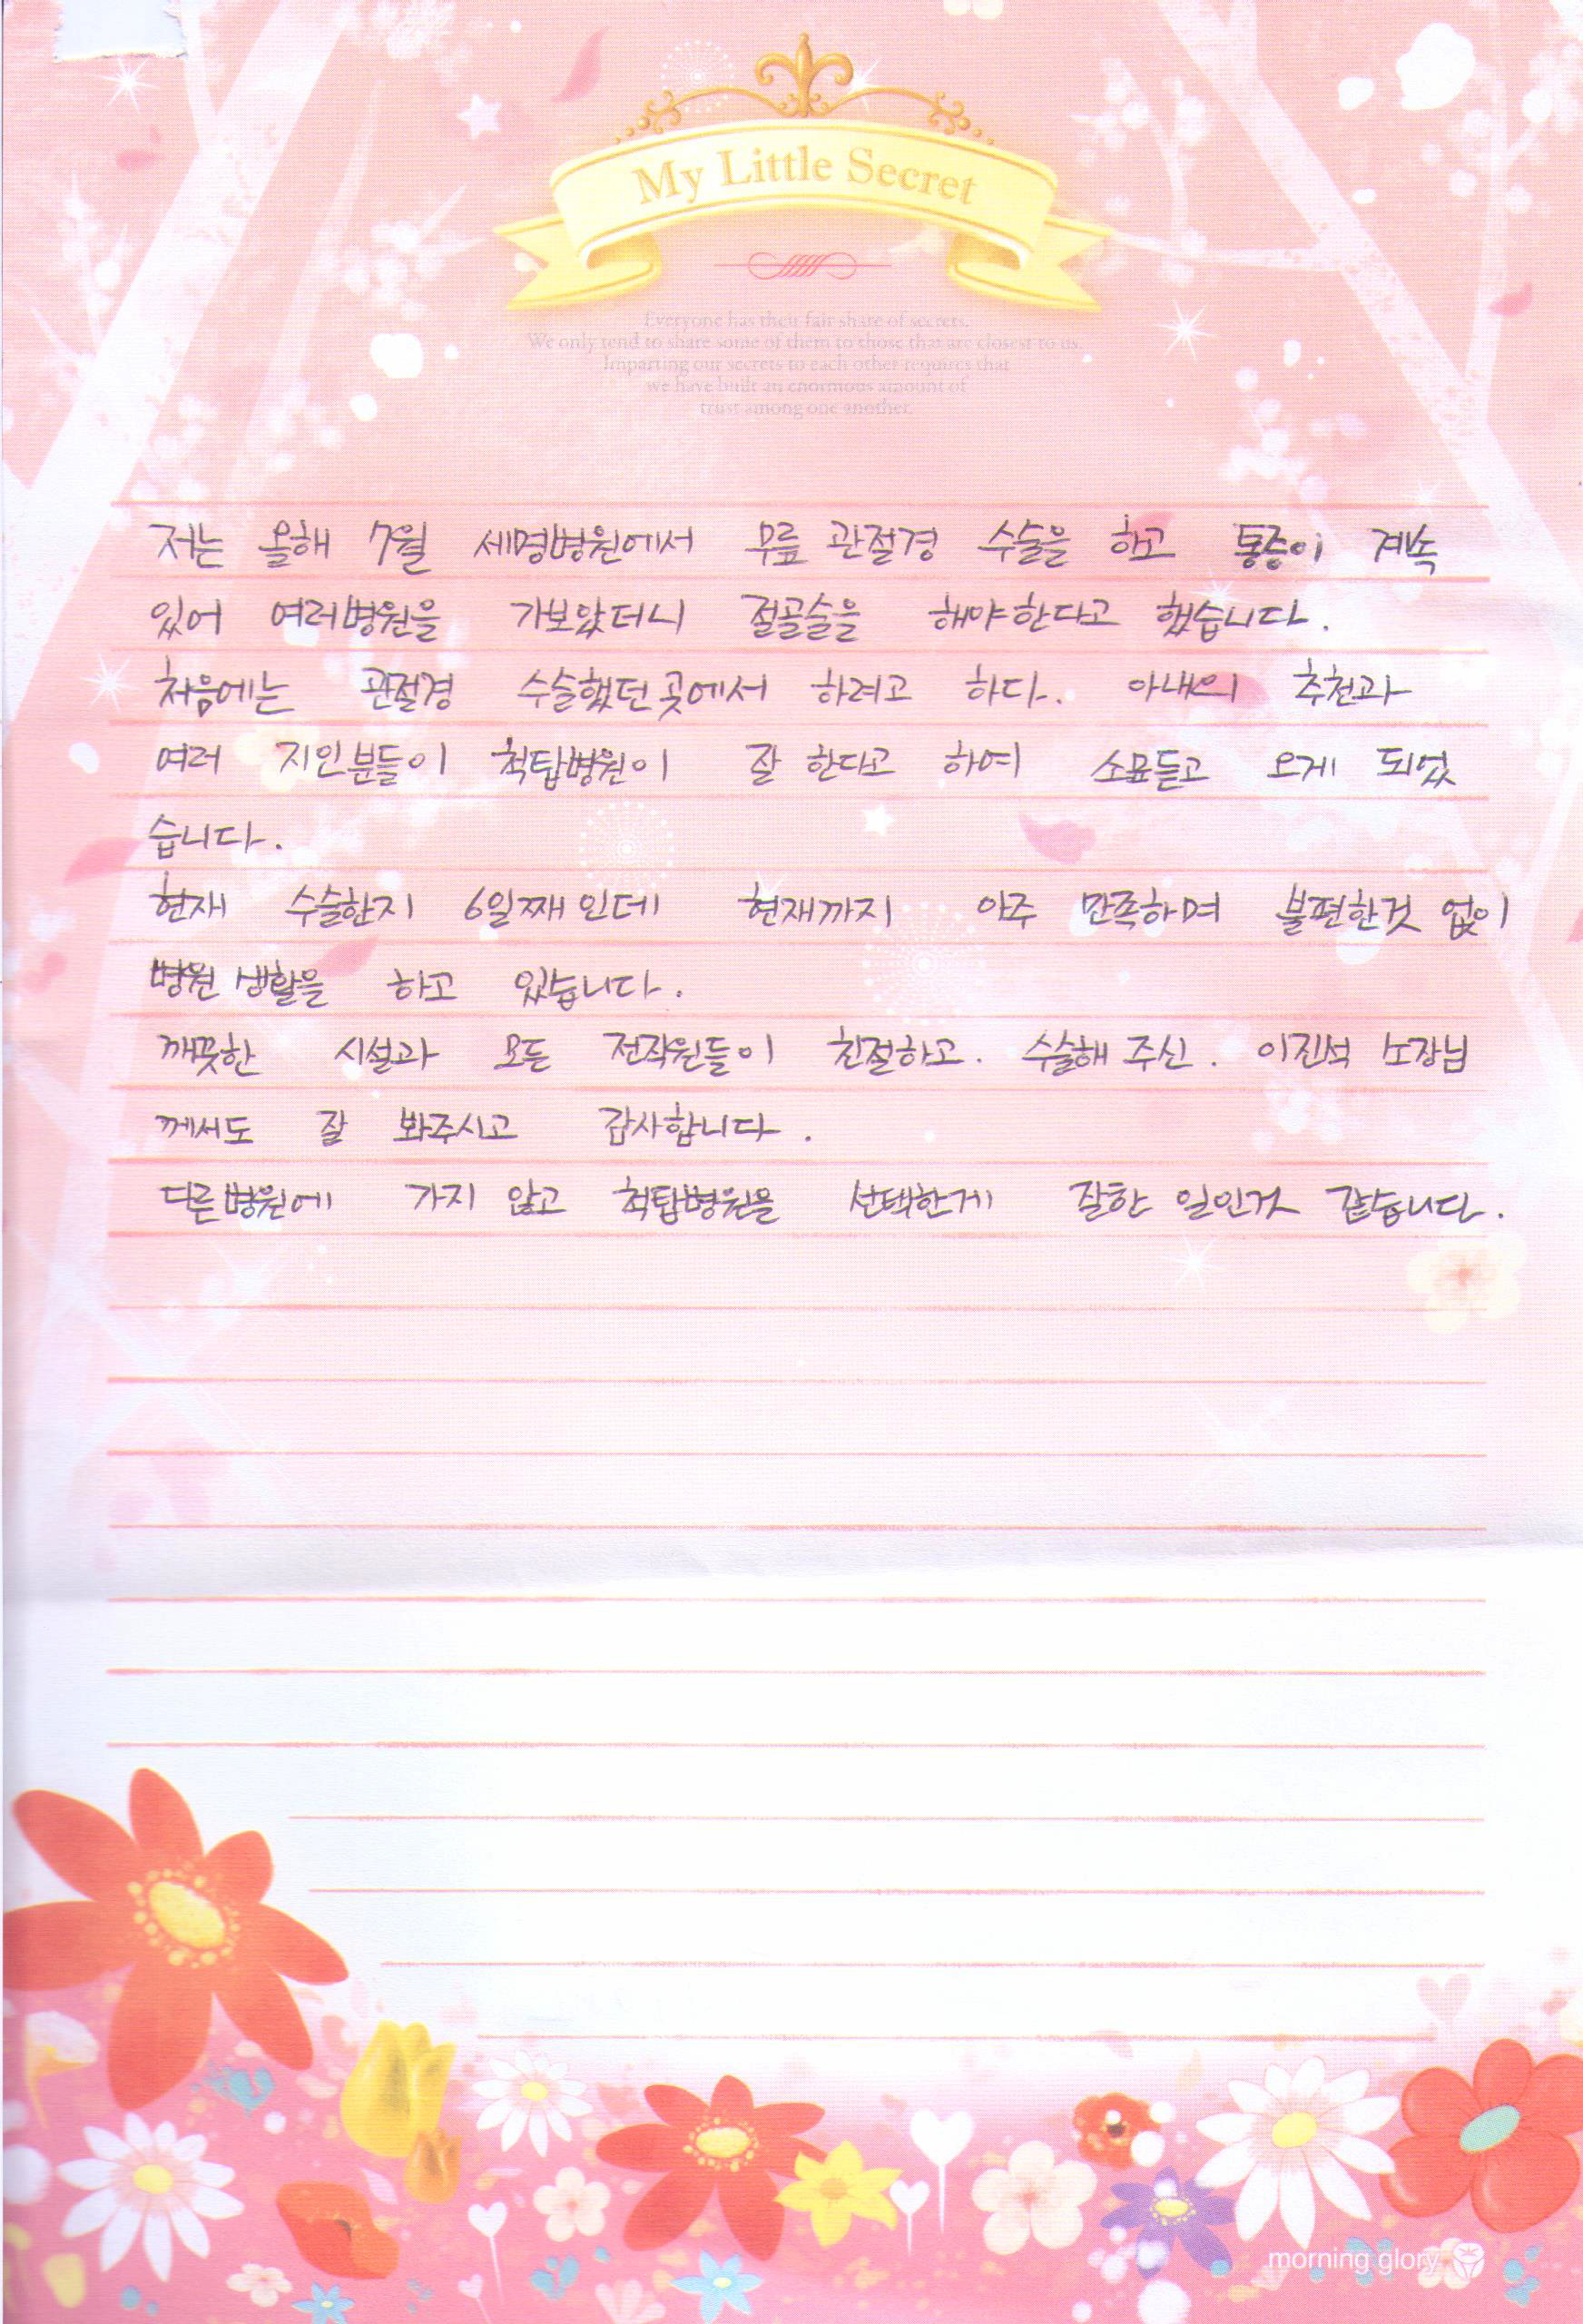 My Little Secret
Everyone has their fair share of secrets.
We only tend to share some of them to those that are closest to us.
Imparting our secrets to each other requires that
we have built an enormous amount of
trust among one another.
저는 올해 7월 세명병원에서 무릎 관절경 수술을 하고 통증이 계속
있어 여러병원을 가보았더니 절골술을 해야한다고 했습니다.
처음에는 관절경 수술했던곳에서 하려고 하다. 아내의 추천과
여러 지인분들이 척탑병원이 잘 한다고 하여 소문듣고 오게 되었
습니다.
현재 수술한지 6일째 인데 현재까지 아주 만족하며 불편한것 없이
병원 생활을 하고 있습니다.
깨끗한 시설과 모든 전직원들이 친절하고. 수술해 주신. 이진석 소장님
께서도 잘 봐주시고 감사합니다.
다른병원에 가지 않고 척탑병원을 선택한게 잘한 일인것 같습니다.
morning glory